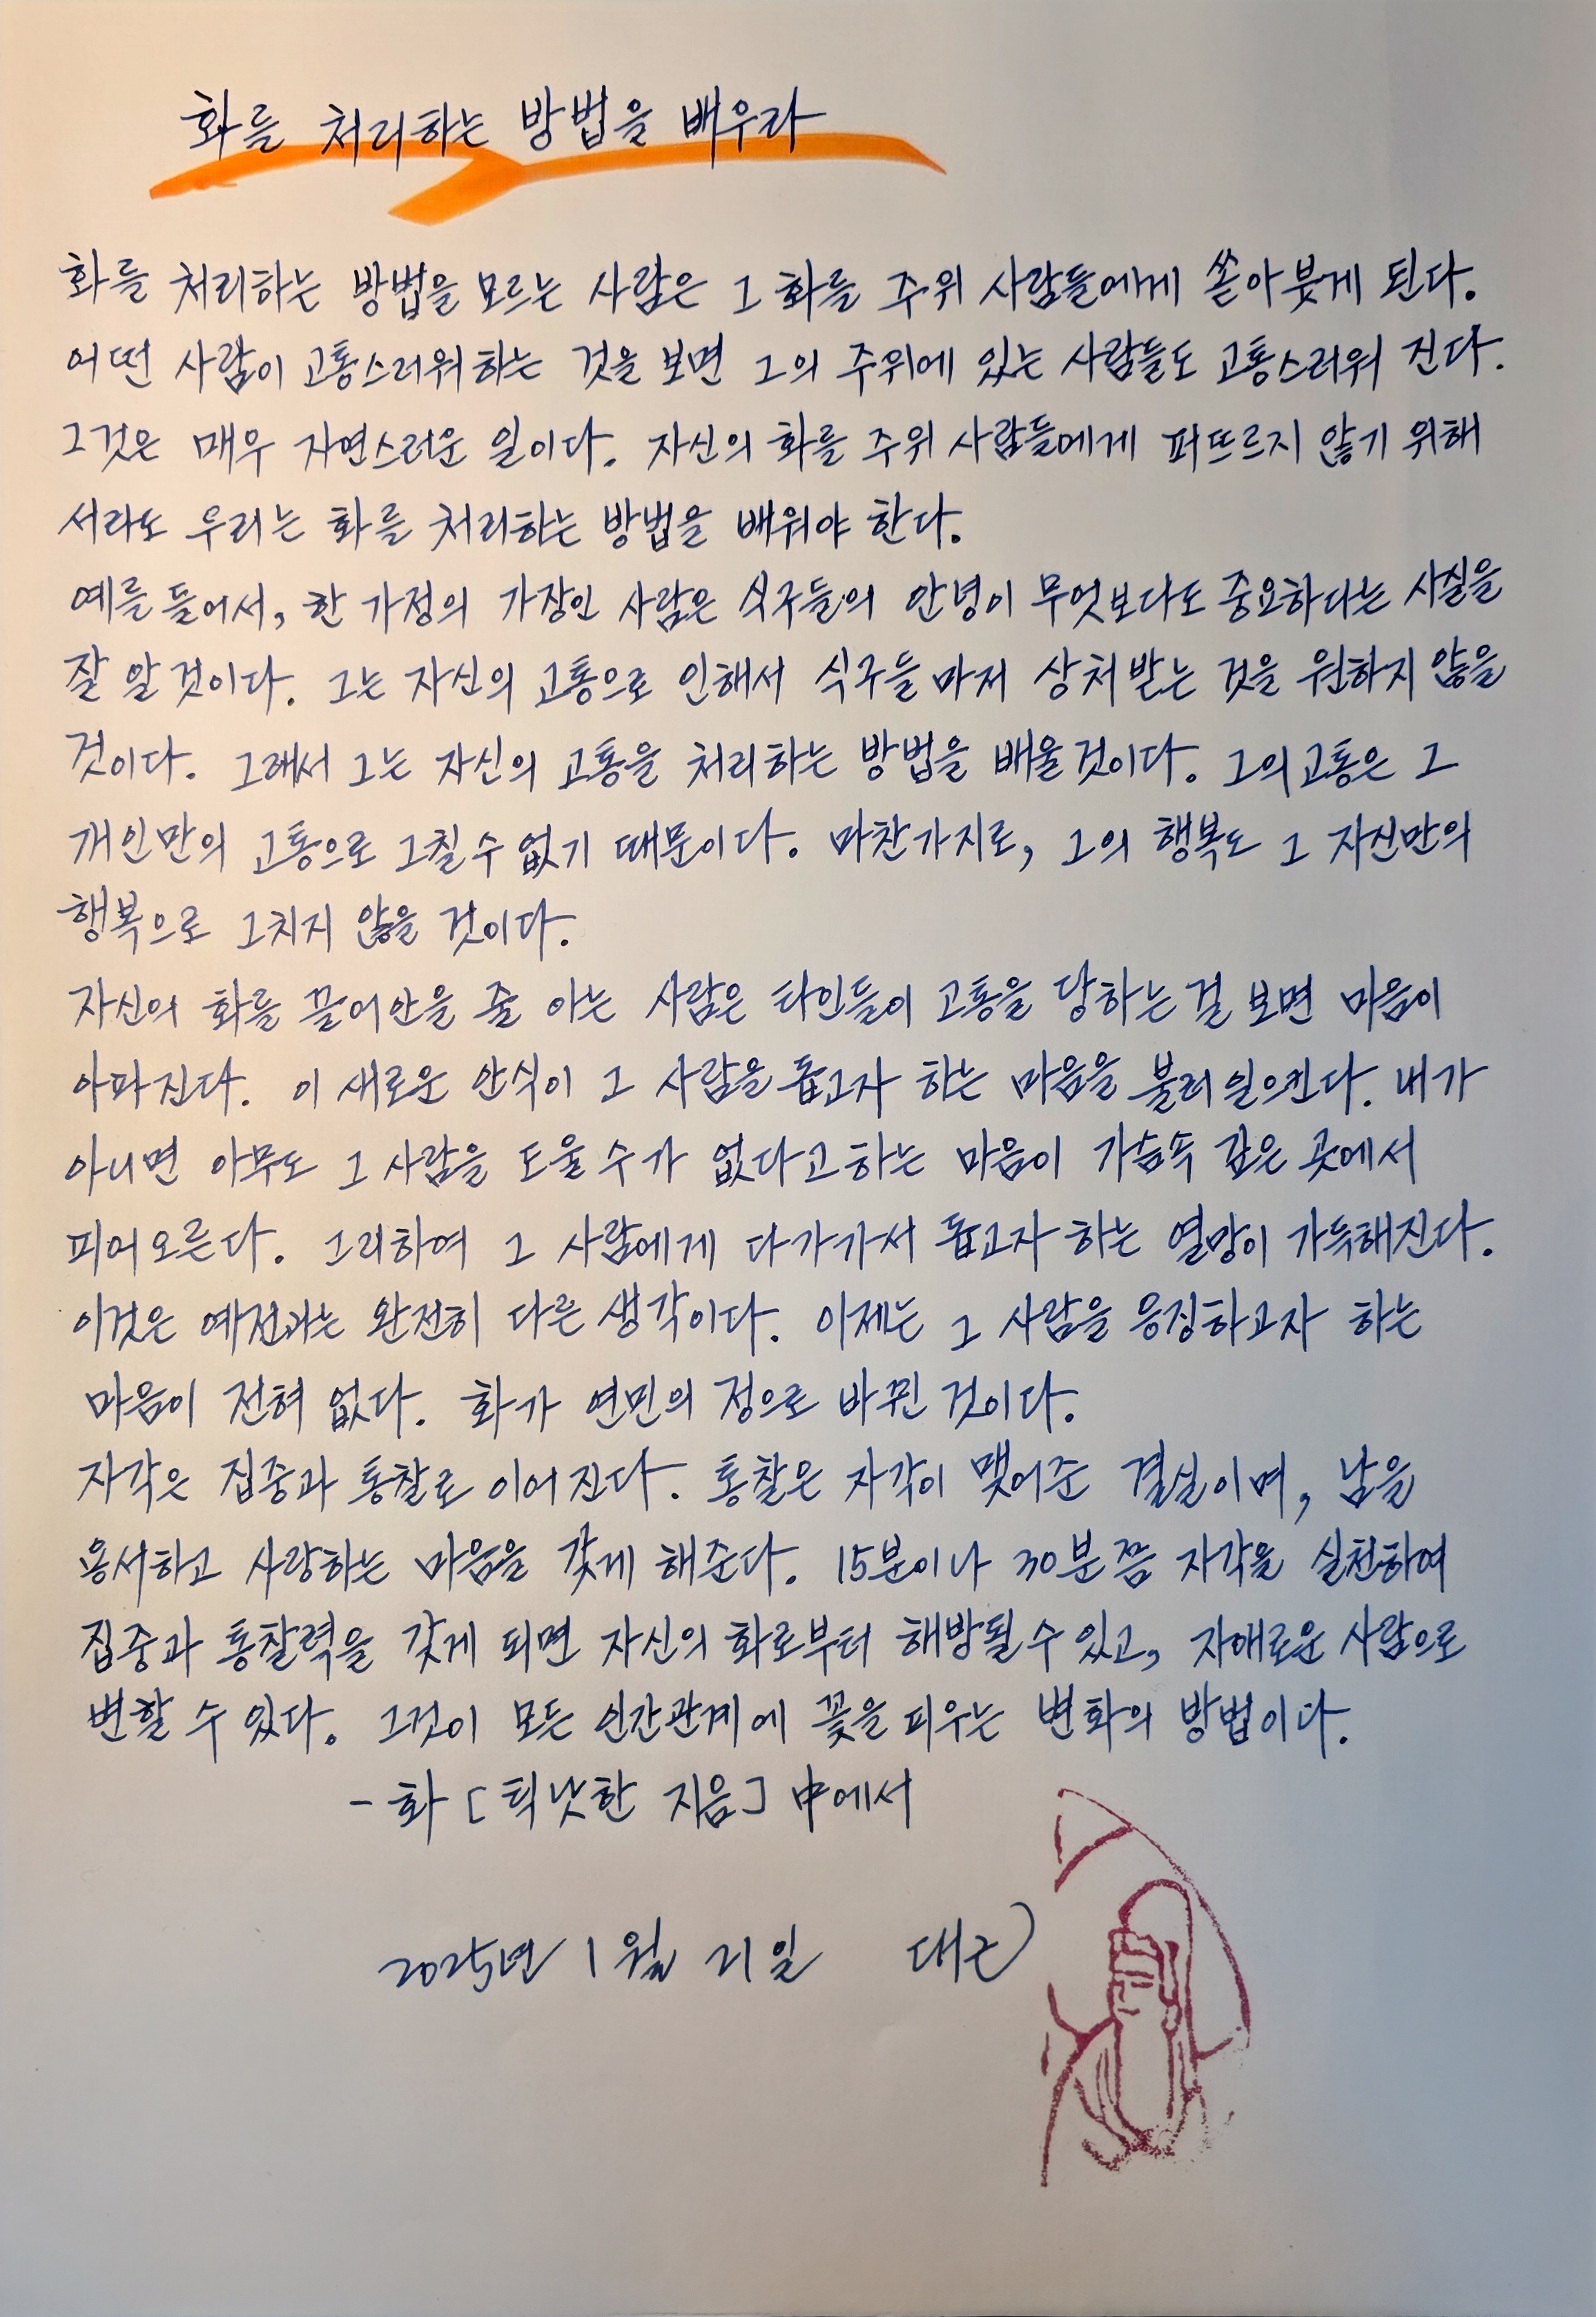 화를 처리하는 방법을 배우라
화를 처리하는 방법을 모르는 사람은 그 화를 주위 사람들에게 쏟아붓게 된다.
어떤 사람이 고통스러워하는 것을 보면 그의 주위에 있는 사람들도 고통스러워 진다.
그것은 매우 자연스러운 일이다. 자신의 화를 주위 사람들에게 퍼뜨리지 않기 위해
서라도 우리는 화를 처리하는 방법을 배워야 한다.
예를 들어서, 한 가정의 가장인 사람은 식구들의 안녕이 무엇보다도 중요하다는 사실을
잘 알 것이다. 그는 자신의 고통으로 인해서 식구들 마저 상처받는 것을 원하지 않을
것이다. 그래서 그는 자신의 고통을 처리하는 방법을 배울것이다. 그의 고통은 그
개인만의 고통으로 그칠 수 없기 때문이다. 마찬가지로, 그의 행복도 그 자신만의
행복으로 그치지 않을 것이다.
자신의 화를 끌어안을 줄 아는 사람은 타인들이 고통을 당하는 걸 보면 마음이
아파진다. 이 새로운 안식이 그 사람을 돕고자 하는 마음을 불러 일으킨다. 내가
아니면 아무도 그 사람을 도울 수가 없다고 하는 마음이 가슴속 깊은 곳에서
피어오른다. 그리하여 그 사람에게 다가가서 돕고자 하는 열망이 가득해진다.
이것은 예전과는 완전히 다른 생각이다. 이제는 그 사람을 응징하고자 하는
마음이 전혀 없다. 화가 연민의 정으로 바뀐 것이다.
자각은 집중과 통찰로 이어진다. 통찰은 자각이 맺어준 결실이며, 남을
용서하고 사랑하는 마음을 갖게 해준다. 15분이나 30분쯤 자각을 실천하여
집중과 통찰력을 갖게 되면 자신의 화로부터 해방될 수 있고, 자애로운 사람으로
변할 수 있다. 그것이 모든 인간관계에 꽃을 피우는 변화의 방법이다.
- 화 [틱낫한 지음] 中에서
2025년 1월 21일 대근